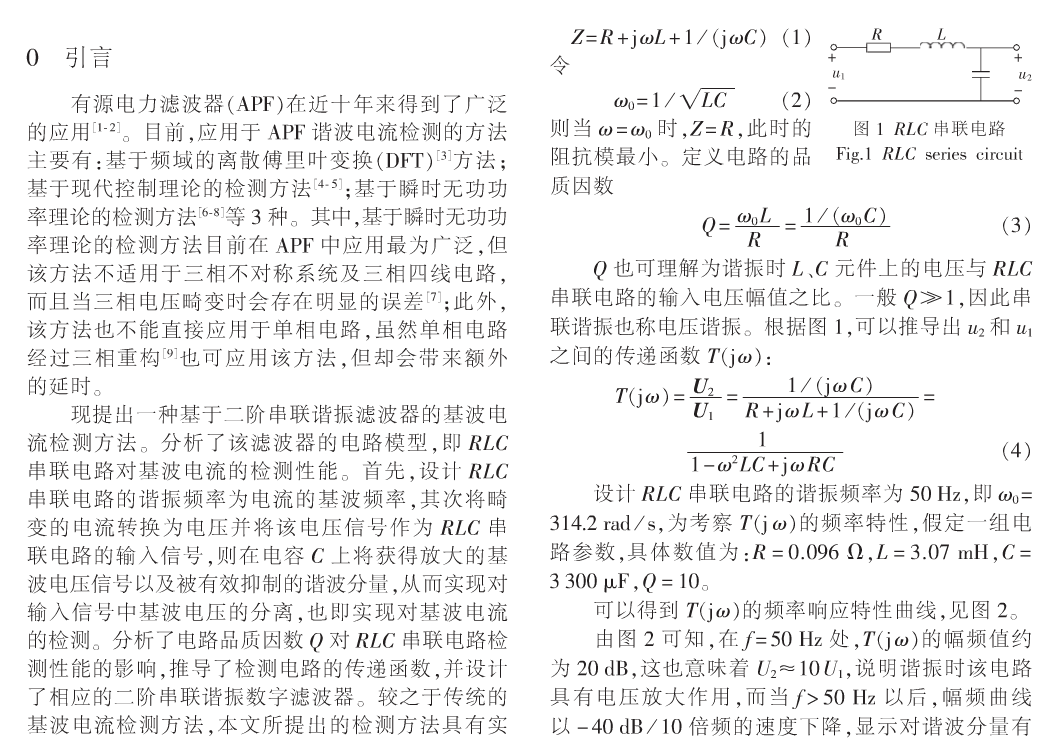 0 引言
有源电力滤波器(APF)在近十年来得到了广泛
的应用[1-2]。目前,应用于 APF 谐波电流检测的方法
主要有:基于频域的离散傅里叶变换(DFT)[3]方法;
基于现代控制理论的检测方法[4-5];基于瞬时无功功
率理论的检测方法[6-8]等 3 种。其中,基于瞬时无功功
率理论的检测方法目前在 APF 中应用最为广泛,但
该方法不适用于三相不对称系统及三相四线电路,
而且当三相电压畸变时会存在明显的误差[7];此外,
该方法也不能直接应用于单相电路,虽然单相电路
经过三相重构[9]也可应用该方法,但却会带来额外
的延时。
现提出一种基于二阶串联谐振滤波器的基波电
流检测方法。分析了该滤波器的电路模型,即 RLC
串联电路对基波电流的检测性能。首先,设计 RLC
串联电路的谐振频率为电流的基波频率,其次将畸
变的电流转换为电压并将该电压信号作为 RLC 串
联电路的输入信号,则在电容 C 上将获得放大的基
波电压信号以及被有效抑制的谐波分量,从而实现对
输入信号中基波电压的分离,也即实现对基波电流
的检测。分析了电路品质因数 Q 对 RLC 串联电路检
测性能的影响,推导了检测电路的传递函数,并设计
了相应的二阶串联谐振数字滤波器。较之于传统的
基波电流检测方法,本文所提出的检测方法具有实
Z=R+jωL+1/(jωC) (1)
令
ω₀=1/√LC (2)
则当 ω=ω₀ 时,Z=R,此时的
阻抗模最小。定义电路的品
质因数
R L
+ +
u₁ u₂
− −
图 1 RLC 串联电路
Fig.1 RLC series circuit
Q=ω₀L/R=1/(ω₀C)/R (3)
Q 也可理解为谐振时 L、C 元件上的电压与 RLC
串联电路的输入电压幅值之比。一般 Q≫1,因此串
联谐振也称电压谐振。根据图 1,可以推导出 u₂ 和 u₁
之间的传递函数 T(jω):
T(jω)=U₂/U₁=1/(jωC)/R+jωL+1/(jωC)=
1/1-ω²LC+jωRC (4)
设计 RLC 串联电路的谐振频率为 50 Hz,即 ω₀=
314.2 rad/s,为考察 T(jω)的频率特性,假定一组电
路参数,具体数值为:R=0.096 Ω,L=3.07 mH,C=
3 300 μF,Q=10。
可以得到 T(jω)的频率响应特性曲线,见图 2。
由图 2 可知,在 f=50 Hz 处,T(jω)的幅频值约
为 20 dB,这也意味着 U₂≈10U₁,说明谐振时该电路
具有电压放大作用,而当 f>50 Hz 以后,幅频曲线
以 -40 dB/10 倍频的速度下降,显示对谐波分量有